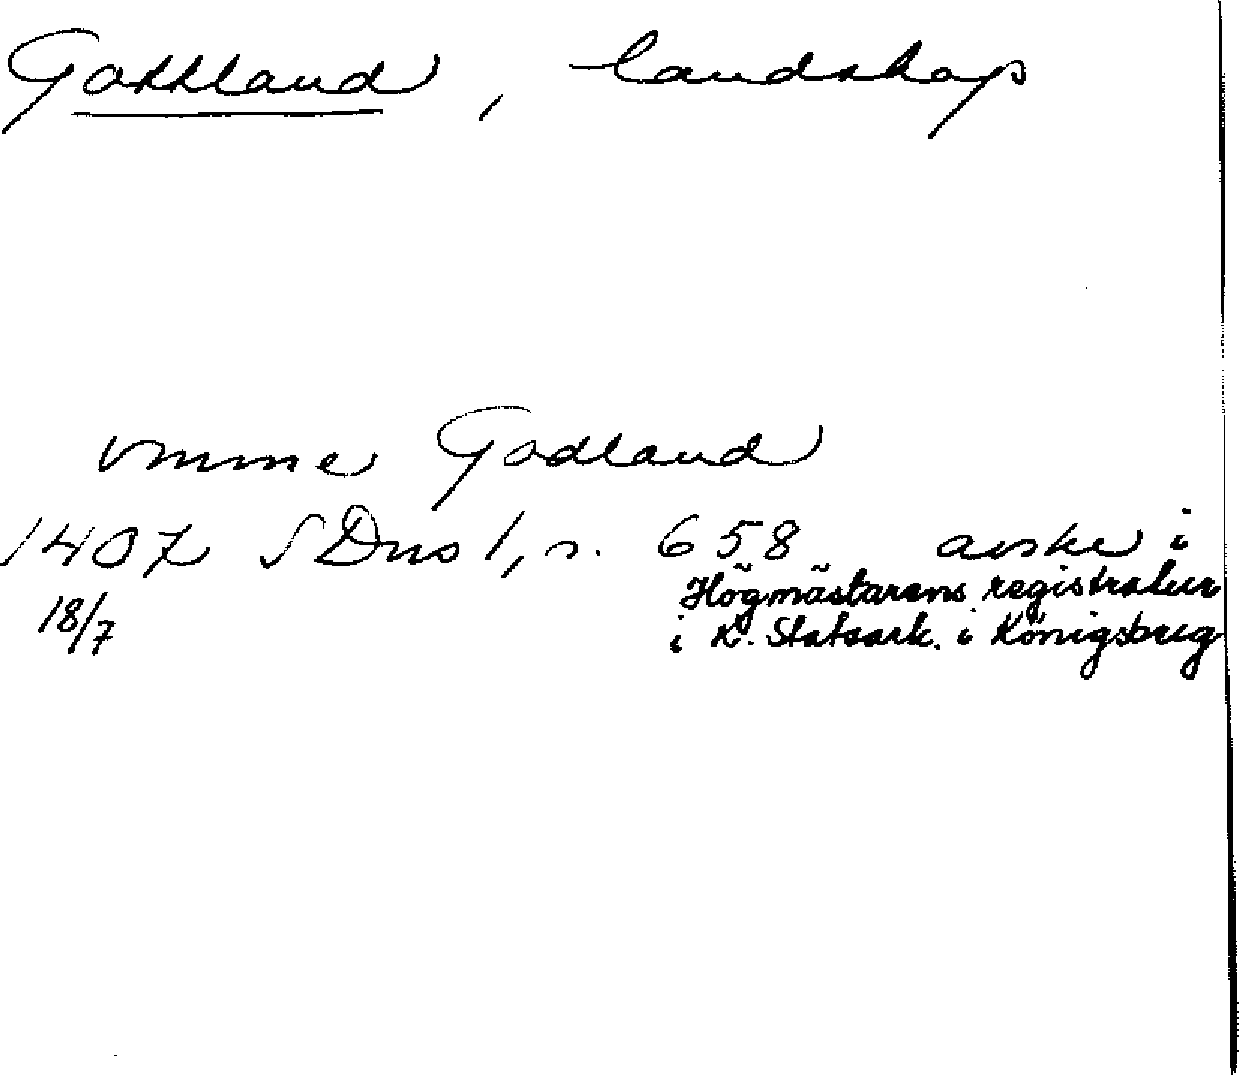 Gottland, landskap
vmme Godland
1407 SDns 1, s. 658 avskr i
18/7 Högmästarens registratur
i K. Statsark. i Königsbrg